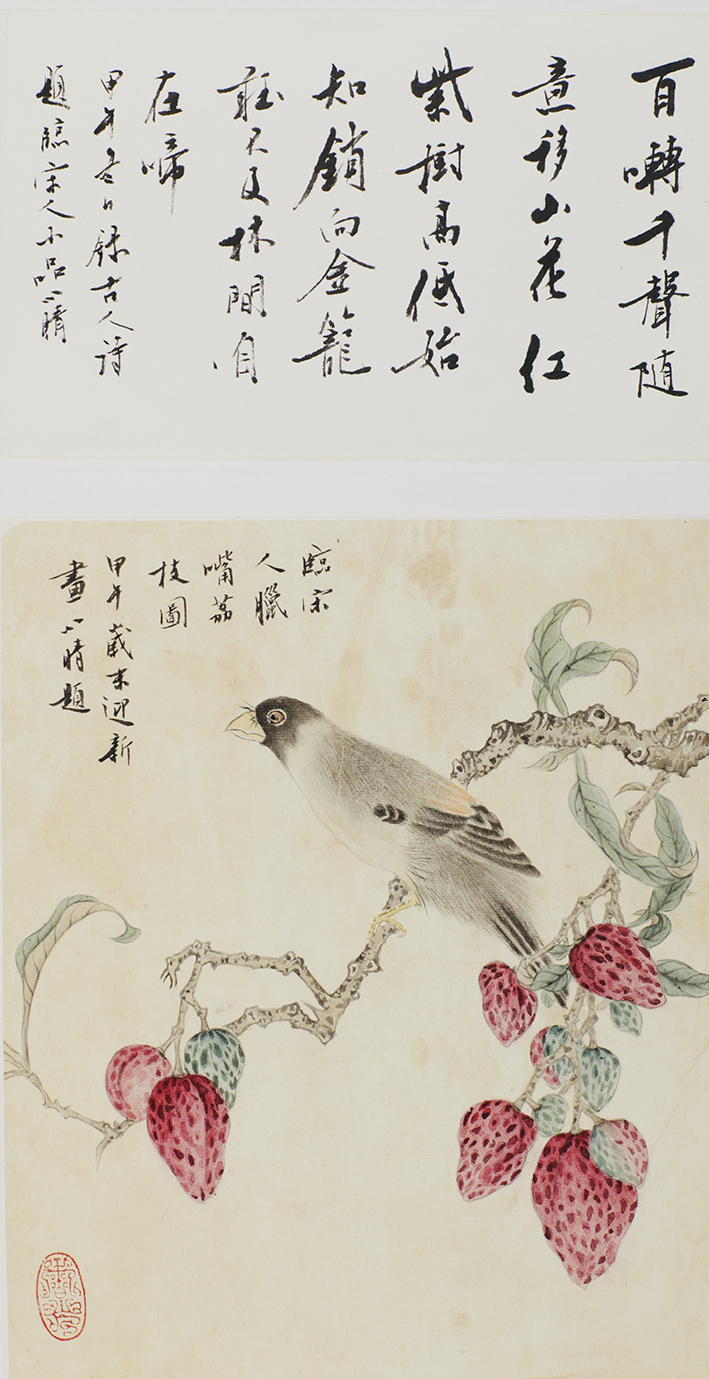 百囀千聲隨
意移山花红
紫樹高低始
知鎖向金籠
聽不及林間自
在啼
甲午冬日録古人詩
題臨宋人小品心晴
臨宋
人臘
嘴荔
枝圖
甲午歲末迎新
畫心晴題